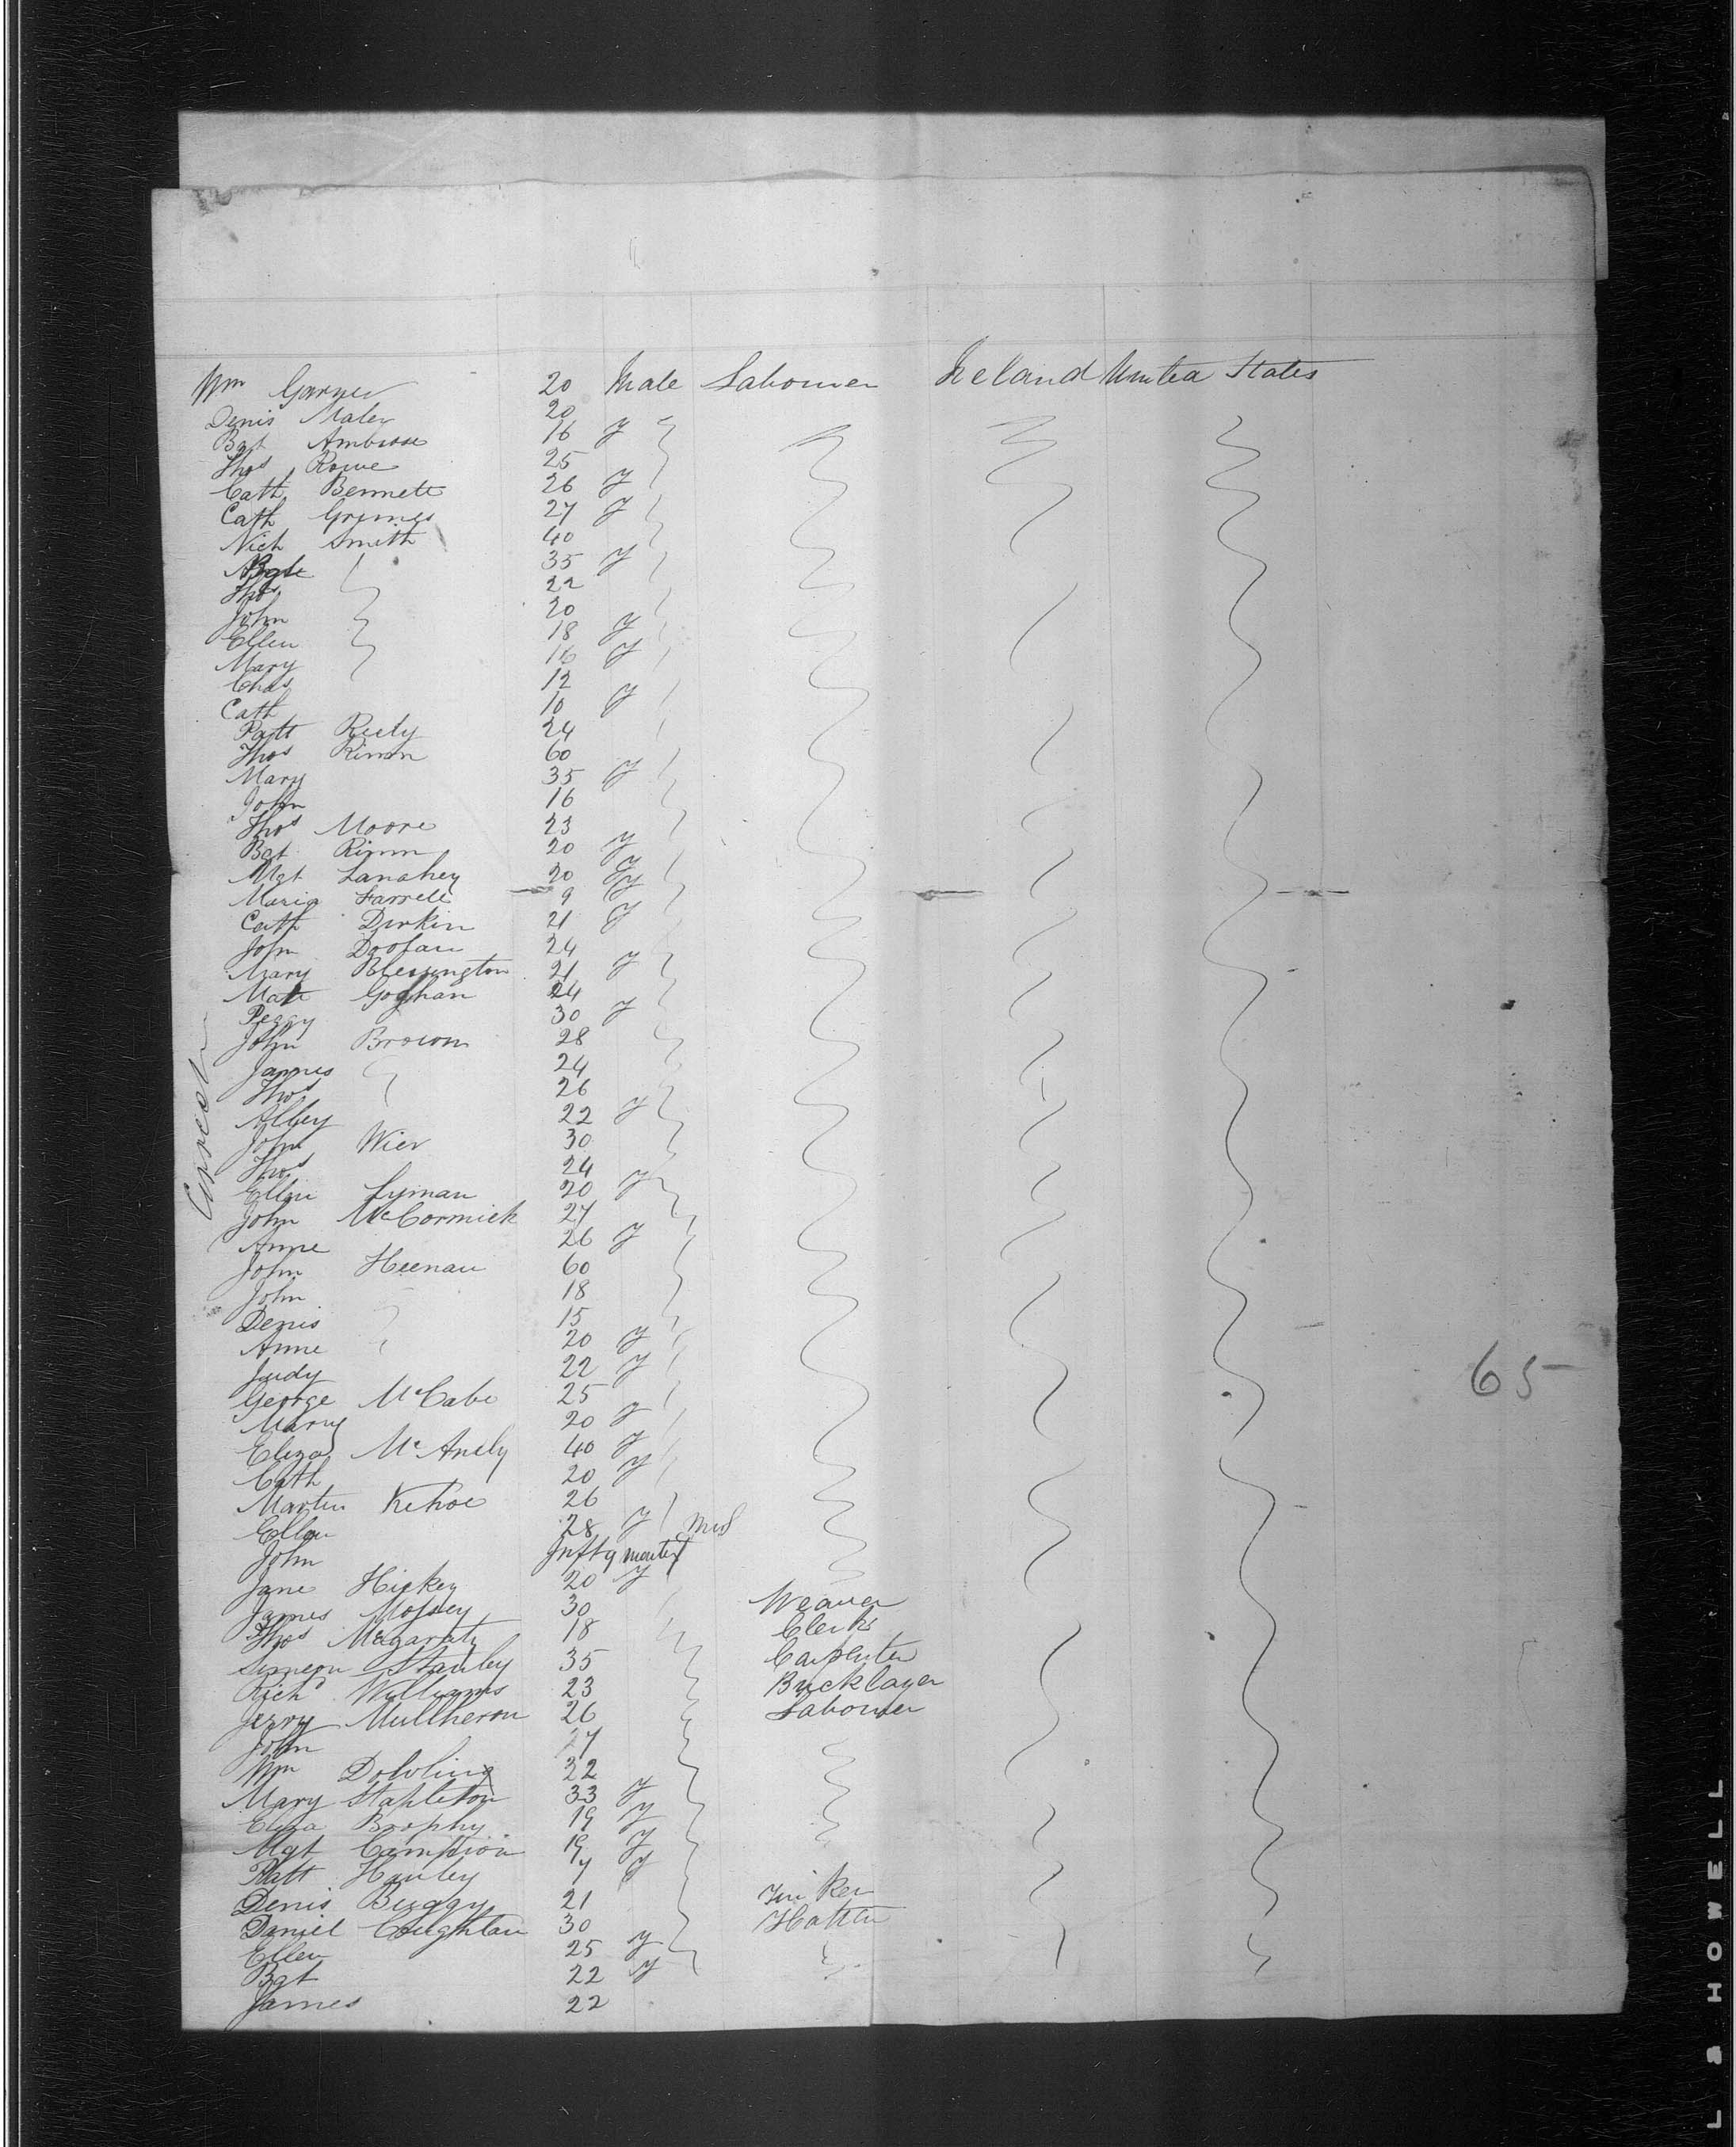 Wm Garner 20 Male Labourer Ireland United States
Denis Maley 20
Bgt Ambrose 16 f
Thos Rowe 25
Cath Bennett 26 f
Cath Grimes 27 f
Nich Smith 40
35 f
Thos 22
John 20
Ellen 18 f
Mary 16 f
Chas 12
Cath 10 f
Patt Reely 24
Thos 60
Mary 35 f
John 16
Thos Moore 23
Bgt 20 f
Mgt Lanahey 20 f
Maria Farrell 9 f
Cath Durkin 21 f
John Doolan 24
Mary Blessington 21 f
Matt Goghan 24
Peggy 30 f
John Brown 28
James 24
Thos 26
Alley 22 f
John Wier 30
Thos 24
Ellen Lyman 20 f
John McCormick 27
Anne 26 f
John Heenan 60
John 18
Denis 15
Anne 20 f
Judy 22 f
George McCabe 25
Mary 20 f
Eliza McAnely 40 f
Cath 20 f
Martin Kehoe 26
Ellen 28 f
John Inft 9 months
Jane Hickey 20 f
James 30 Weaver
Thos Magaraty 18 Clerk
Simeon Stanley 35 Carpenter
Richd Williams 23 Bricklayer
Jerry Mullheron 26 Labourer
John 27
Wm Dowling 32
Mary Stapleton 33 f
Eliza Brophy 19 f
Mgt Campion 19 f
Patt Hanley 7 f
Denis Buggy 21
Daniel Coughlan 30 Hatter
Ellen 25 f
Bgt 22 f
James 22
65
L & HOWELL